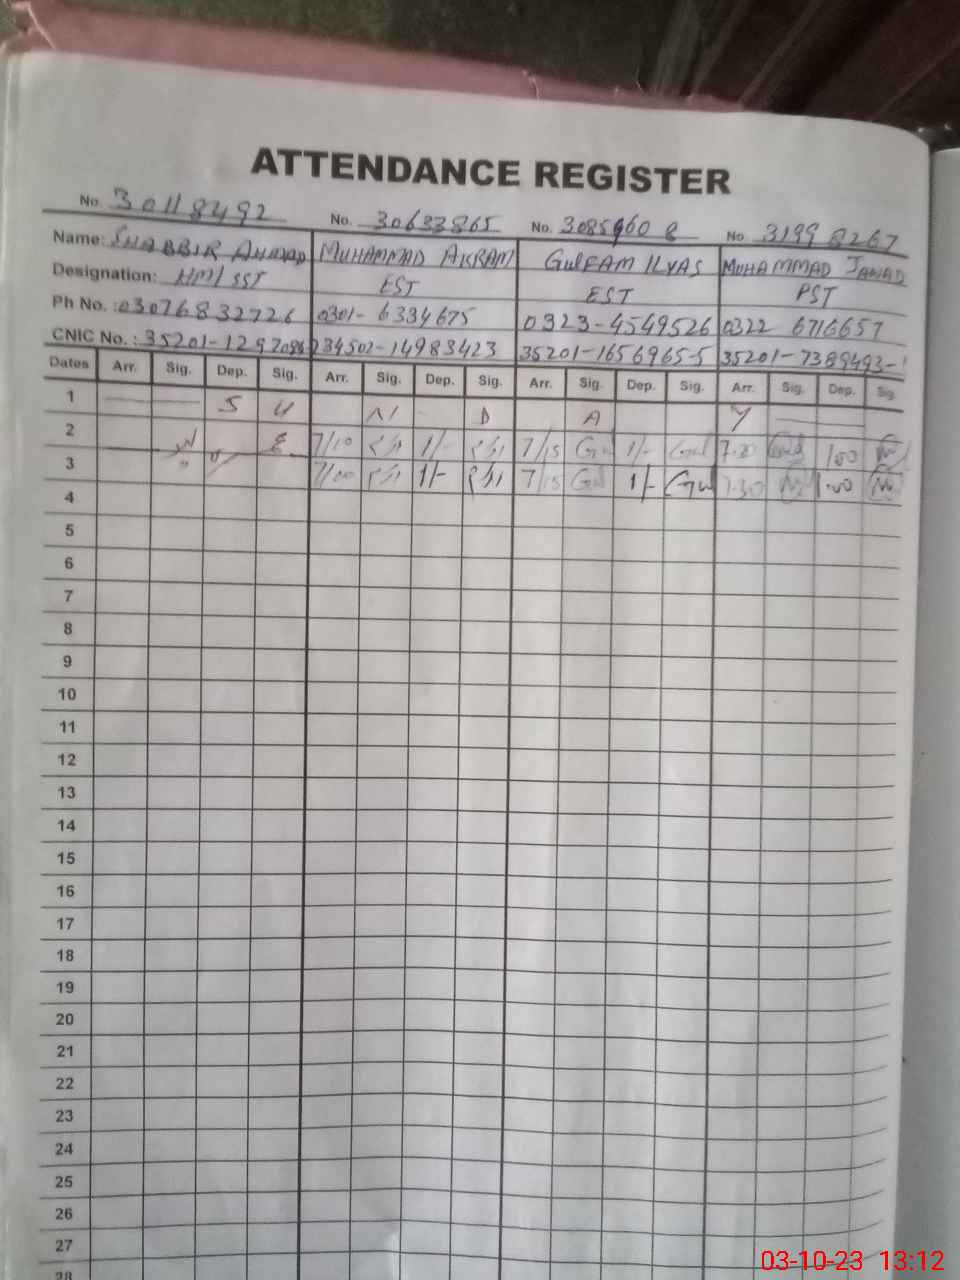 ATTENDANCE REGISTER
No. 30118492 No. 30633865 No. 30859608 No. 31998267
Name: SHABBIR AHMAD MUHAMMAD AKRAM GULFAM ILYAS MUHAMMAD JAWAD
Designation: HM/SST EST EST PST
Ph No. : 03076832726 0301-6334675 0323-4549526 0322 6716657
CNIC No. : 35201-1297086 234502-14983423 35201-16569655 35201-7389493-1
Dates Arr. Sig. Dep. Sig. Arr. Sig. Dep. Sig. Arr. Sig. Dep. Sig. Arr. Sig. Dep. Sig.
1 S U N D A Y
2 7/10 1/- 7/15 Gul 1/- Gul 7.30 1.00
3 7/00 1/- 7/15 Gul 1/- Gul 7.30 1.00
4
5
6
7
8
9
10
11
12
13
14
15
16
17
18
19
20
21
22
23
24
25
26
27
28
03-10-23 13:12